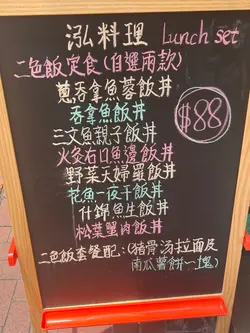 泓料理 Lunch set
二色飯定食(自選兩款)
蔥吞拿魚蓉飯丼
吞拿魚飯丼
三文魚親子飯丼
火炙右口魚邊飯丼
野菜天婦羅飯丼
花魚一夜干飯丼
什錦魚生飯丼
松葉蟹肉飯丼
$88
二色飯套餐配:(豬骨湯拉面及
南瓜薯餅一塊)